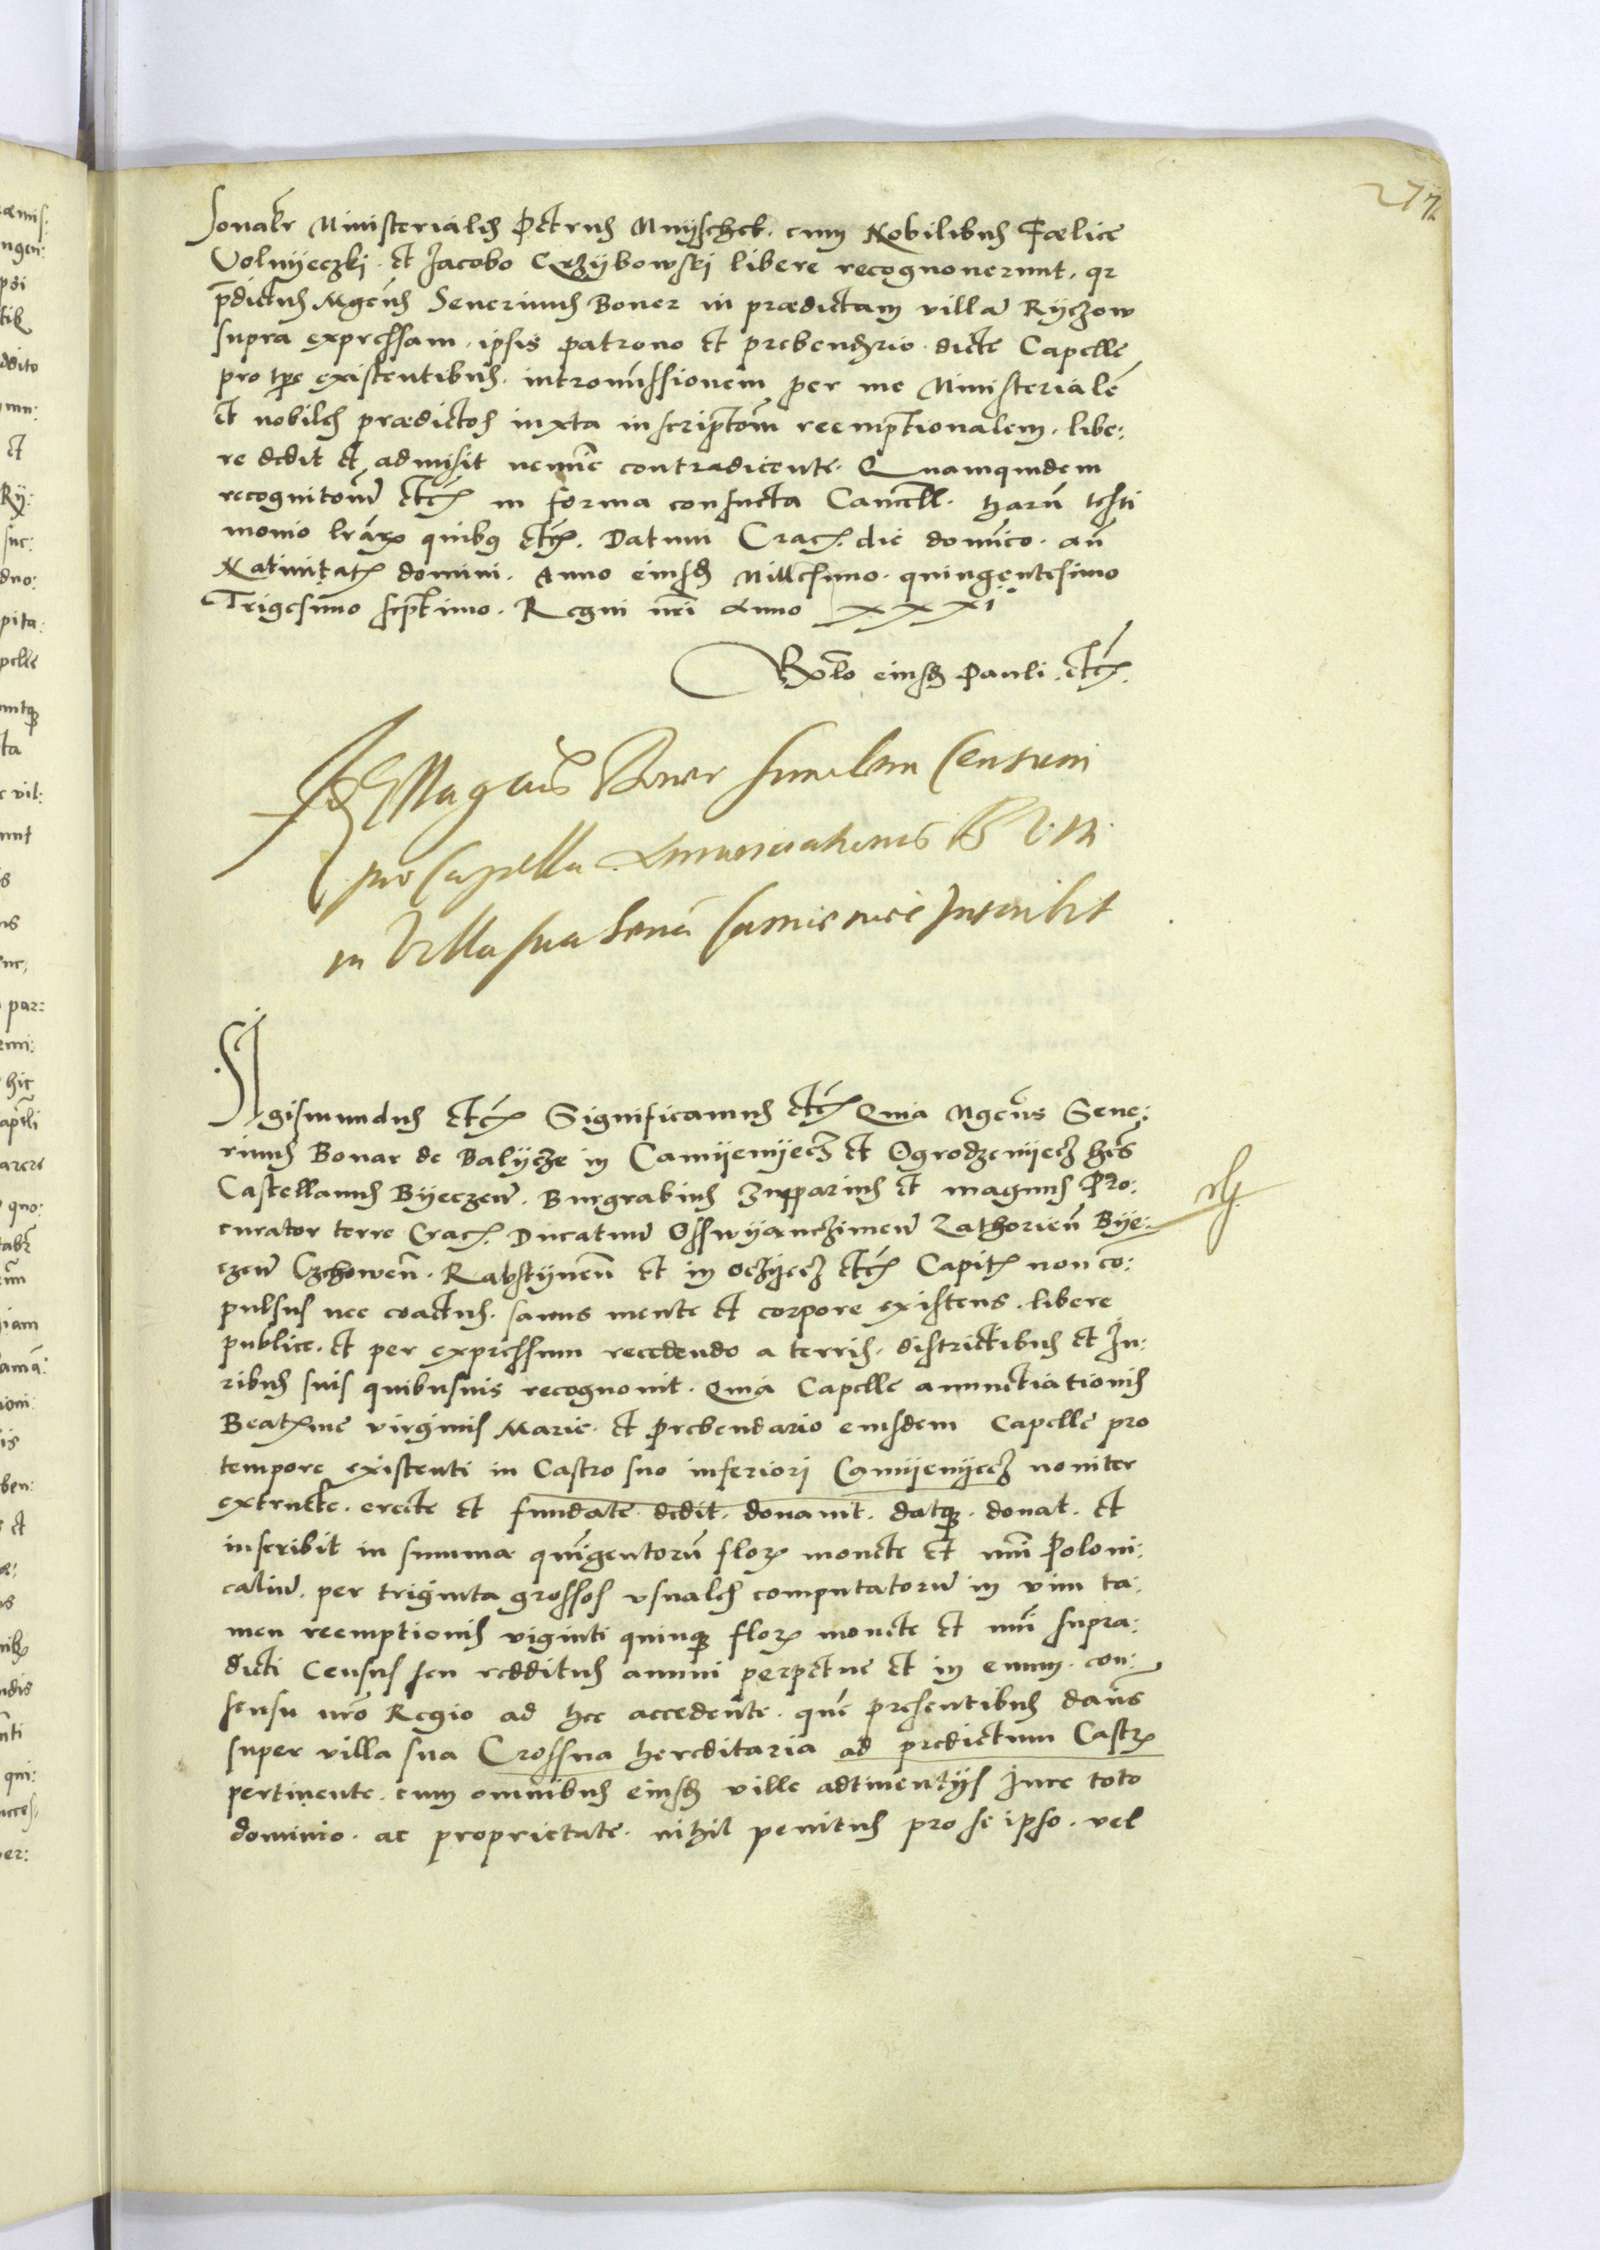 272
sonalr Ministerialis Petrus Mnyschek cum Nobilibus Fœlice
Volnyeczki et Jacobo Grzybowski libere recognoverunt, qr
p̄dictus Mgcus Severinus Boner in prædictam villā Ryczow
supra expressam ipsis patrono et prebendario dicte Capelle
pro tpe existentibus intromissionem per me Ministerialē
et nobiles prædictos iuxta inscriptōm reemptionalem libe:
re dedit et admisit nemīe contradicente Quamquidem
recognitōm etc in forma consueta Cancell. harū testi
monio lrārₓ quibus etc. Datum Crac. die domīco. an̄
Natiuitatꝭ domini. Anno eiusdē Millesimo quingentesimo
Trigesimo septimo. Regni nr̄i Anno xxxi
Rlō eiusdē Pauli etc.
Idē Magcus Boner similem Censum
pro Capella Annunciationis B V M
in Villa sua Camienicie Inscribit
Sigismundus etc Significamus etc Quia Mgcus Seue:
rinus Bonar de Balycze in Camyenyecz et Ogrodzenyecz hers
Castellanus Byeczen̄. Burgrabius Zupparius et magnus Pro:
curator terre Crac. Ducatuū Osswyanczimen̄ Zathorien̄ Bye:
czen̄ Czchowen̄. Rabstynen̄ et in Oczyecz etc Capitꝭ non cō:
pulsus nec coactus. sanus mente et corpore existens libere
publice et per expressum recedendo a terris districtibus et Iu:
ribus suis quibusuis recognouit. Quia Capelle annunctiationis
Beatꝭme virginis Marie et Prebendario eiusdem Capelle pro
tempore existenti in Castro suo inferiori Camyenyecz nouiter
extructe. erecte et fundate dedit. donauit. datqꝫ donat. et
inscribit in summa quīgentorū florꝭ monete et nr̄i Poloni:
caliū. per triginta grossos vsuales computatorū in vim ta:
men reemptionis viginti quinqꝫ florꝭ monete et nr̄i supra:
dicti Census seu redditus annui perpetue et in euum. con:
sensu nr̄o Regio ad hec accedente quē presentibus dam̄s
super villa sua Crossna hereditaria ad predictum Castrꝭ
pertinente. cum omnibus eiusdē ville adtinentijs Iure toto
dominio. ac proprietate. nihil penitus pro se ipso. vel